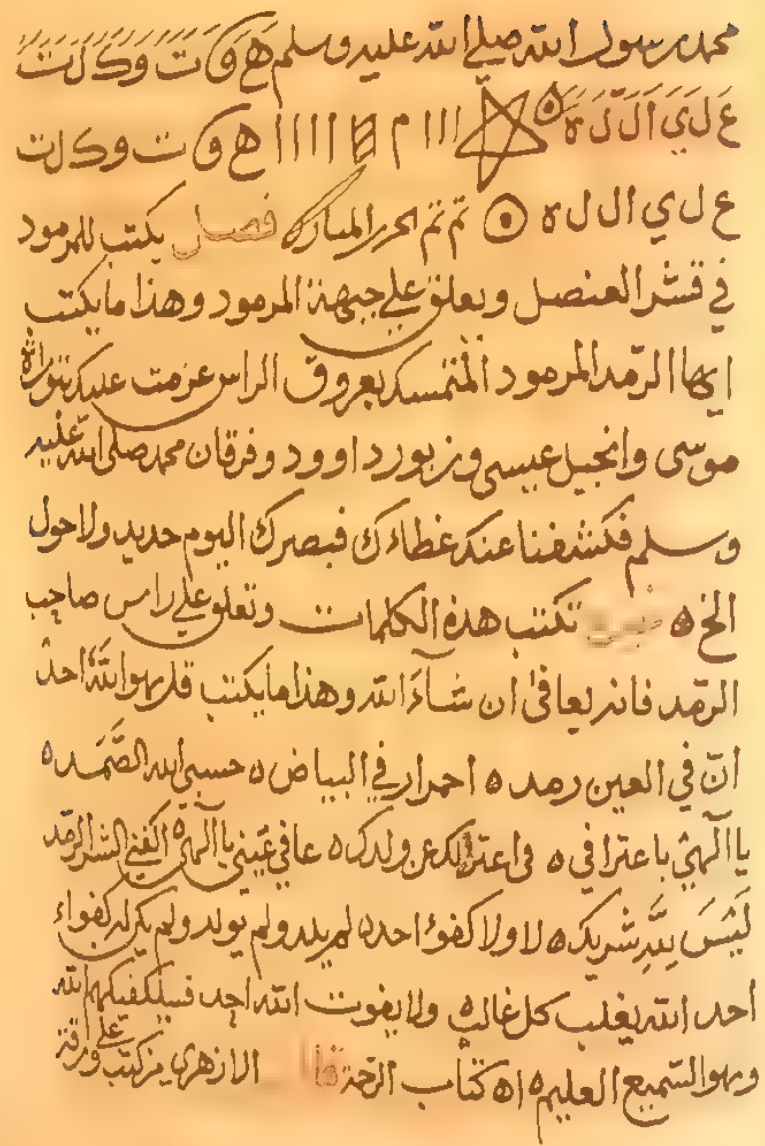 محمد رسول الله صلي الله عليه وسلم هَ وَ قَ تَ وَ كَ لَ تَ
عَ لَ يَ اَ لَ لَ هَ
ااا م اااا ه و ق ت و ك ل ت
ع ل ي ا ل ل ه تم تم الحرز المبارك فصل يكتب للمرمود
في قشر العنصل ويعلق علي جبهة المرمود وهذا ما يكتب
ايها الرّمد المرمود المتمسك بعروق الراس عزمت عليك بتوراة
موسى وانجيل عيسى وزبور داوود وفرقان محمد صلى الله عليه
وسلم فكشفنا عنك غطاءك فبصرك اليوم حديد ولا حول
الخ ه تكتب هذه الكلمات وتعلق علي راس صاحب
الرّمد فانه يعافى ان شآء الله وهذا ما يكتب قل هو الله احد
انّ في العين رمد ه احمرار في البياض ه حسبي الله الصَّمَد ه
يا الهي باعترافي ه في اعتزالك عن ولدك ه عافي عيني يا الهي ه اكفني الشر الرمد
لَيْسَ لِلّهِ شريك ه لا ولا كفؤ احد ه لم يلد ولم يولد ولم يكن له كفواء
احد الله يغلب كل غالب ه ولا يفوت الله احد فسيكفيكهم الله
وهو السّميع العليم ه اه كتاب الرحمة الازهري من كتب على ورقة